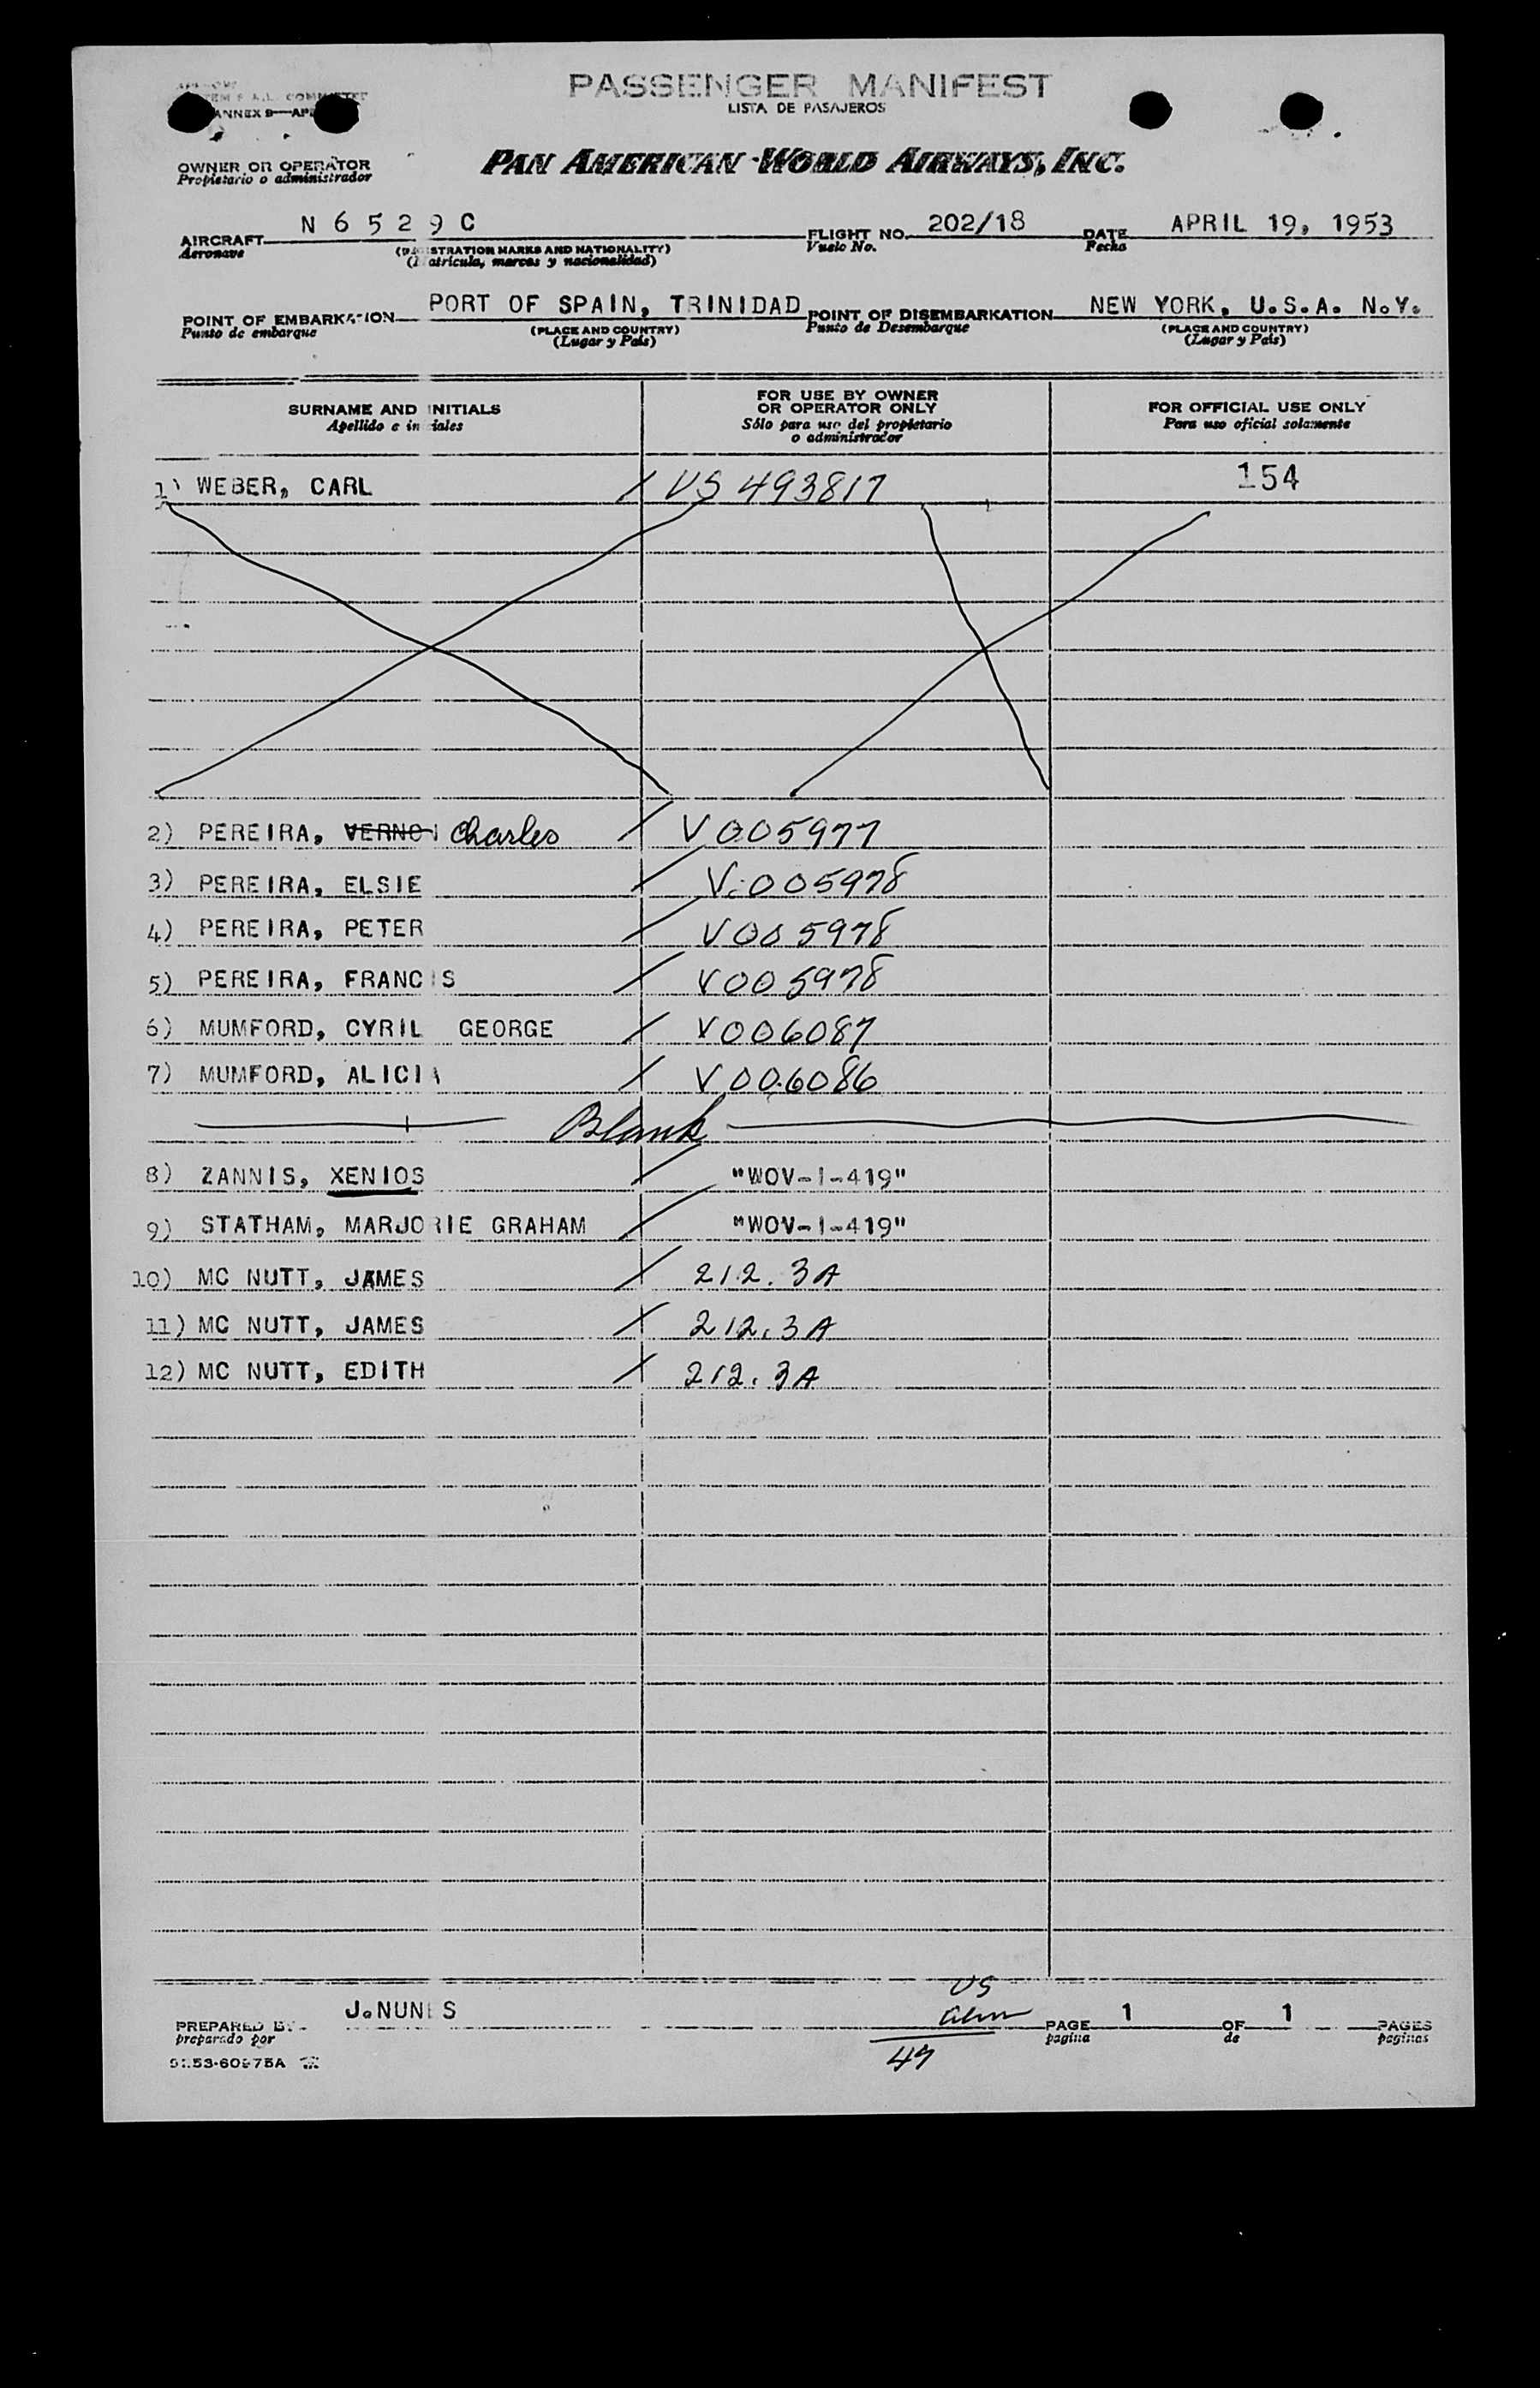 PASSENGER MANIFEST
LISTA DE PASAJEROS
ANNEX 9
OWNER OR OPERATOR
Propietario o administrador
PAN AMERICAN WORLD AIRWAYS, INC.
AIRCRAFT N 6 5 2 9 C FLIGHT NO. 202/18 DATE APRIL 19, 1953
Aeronave Vuelo No. Fecha
(REGISTRATION MARKS AND NATIONALITY)
(Matrícula, marcas y nacionalidad)
POINT OF EMBARKATION PORT OF SPAIN, TRINIDAD POINT OF DISEMBARKATION NEW YORK, U.S.A. N.Y.
Punto de embarque (PLACE AND COUNTRY) Punto de Desembarque (PLACE AND COUNTRY)
(Lugar y País) (Lugar y País)
SURNAME AND INITIALS FOR USE BY OWNER OR OPERATOR ONLY FOR OFFICIAL USE ONLY
Apellido e iniciales Sólo para uso del propietario o administrador Para uso oficial solamente
1) WEBER, CARL / US 493817 154
2) PEREIRA, VERNON Charles / V005977
3) PEREIRA, ELSIE / V.005978
4) PEREIRA, PETER / V005978
5) PEREIRA, FRANCIS / V005978
6) MUMFORD, CYRIL GEORGE / V006087
7) MUMFORD, ALICIA / V006086
Blank
8) ZANNIS, XENIOS / "WOV-1-419"
9) STATHAM, MARJORIE GRAHAM / "WOV-1-419"
10) MC NUTT, JAMES / 212.3A
11) MC NUTT, JAMES / 212.3A
12) MC NUTT, EDITH / 212.3A
US
PREPARED BY J.NUNES PAGE 1 OF 1 PAGES
preparado por pagina de paginas
49